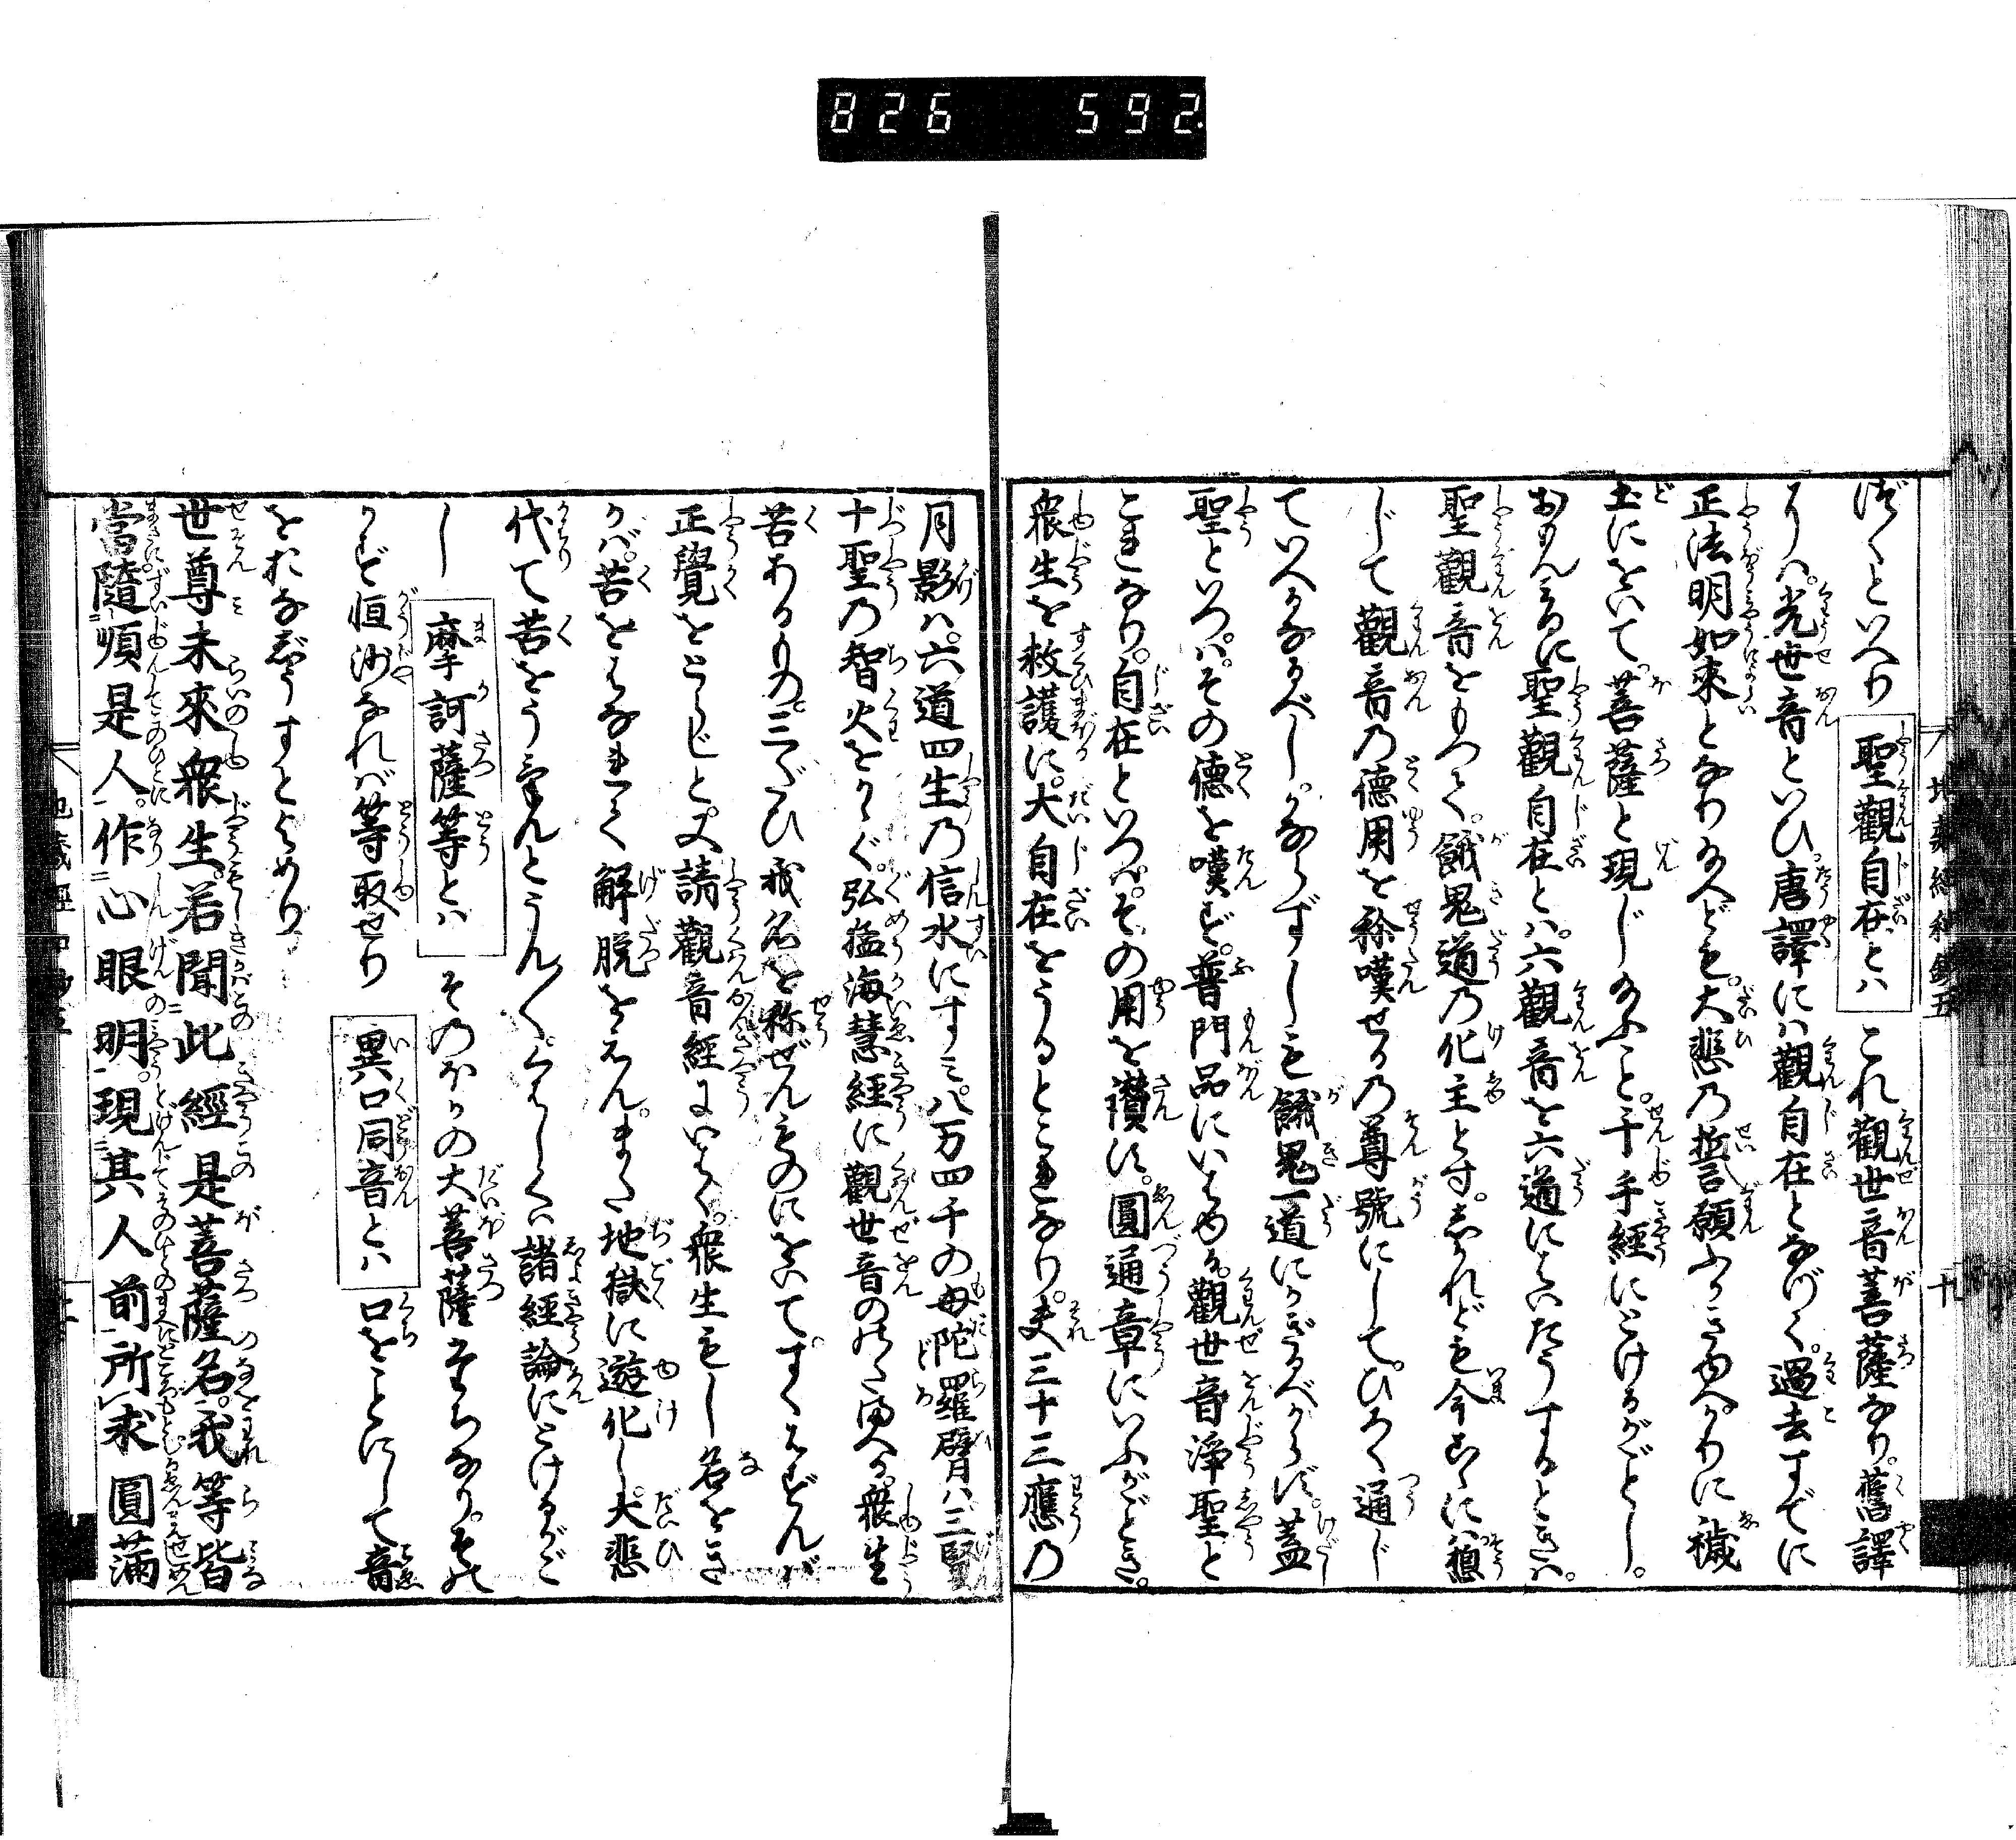 826 592
づくといへり 聖觀自在とハ これ觀世音菩薩なり。舊譯
にハ。光世音といひ。唐譯にハ觀自在となづく。過去すでに
正法明如來となりたまへども。大悲の誓願ふかきゆへ。かりに穢
土にをいて。菩薩と現じたまふこと。千手經にとけるがごとし。
おもんみるに聖觀自在とハ。六觀音を六道にはいたうするときハ。
聖觀音をもつて。餓鬼道の化主とす。しかれども今こゝにハ。總
じて觀音の德用を稱嘆せるの尊號にして。ひろく通じ
ていへるなるべし。かならずしも餓鬼一道にかぎるべからず。蓋
聖といつぱ。その德を嘆ず。普門品にいはゆる。觀世音淨聖と
これなり。自在といつぱ。その用を讚ず。圓通章にいふがごとき。
衆生を救護に。大自在をうるとこれなり。夫三十三應の
月影ハ。六道四生の信水にすミ。八万四千の母陀羅臂ハ三賢
十聖の智火をかゝぐ。弘猛海慧經に觀世音ののたまへる。衆生
苦あるもの。三たび我名を稱ぜんものにをいて。すくはずんバ
正覺をとらじと。又請觀音經にいはく。衆生もし名をき
かバ。苦をはなれて解脫をえん。また地獄に遊化し。大悲
代て苦をうけんとうん〳〵。くはしくハ諸經論にとけるがご
し 摩訶薩等とハ そのほかの大菩薩たちなり。その
かず恒沙なれバ等取せり 異口同音とハ 口をことにして音
をおなじうすとよめり
世尊未來衆生。若聞此經是菩薩名。我等皆
當隨順是人。作心眼明。現其人前所求圓滿